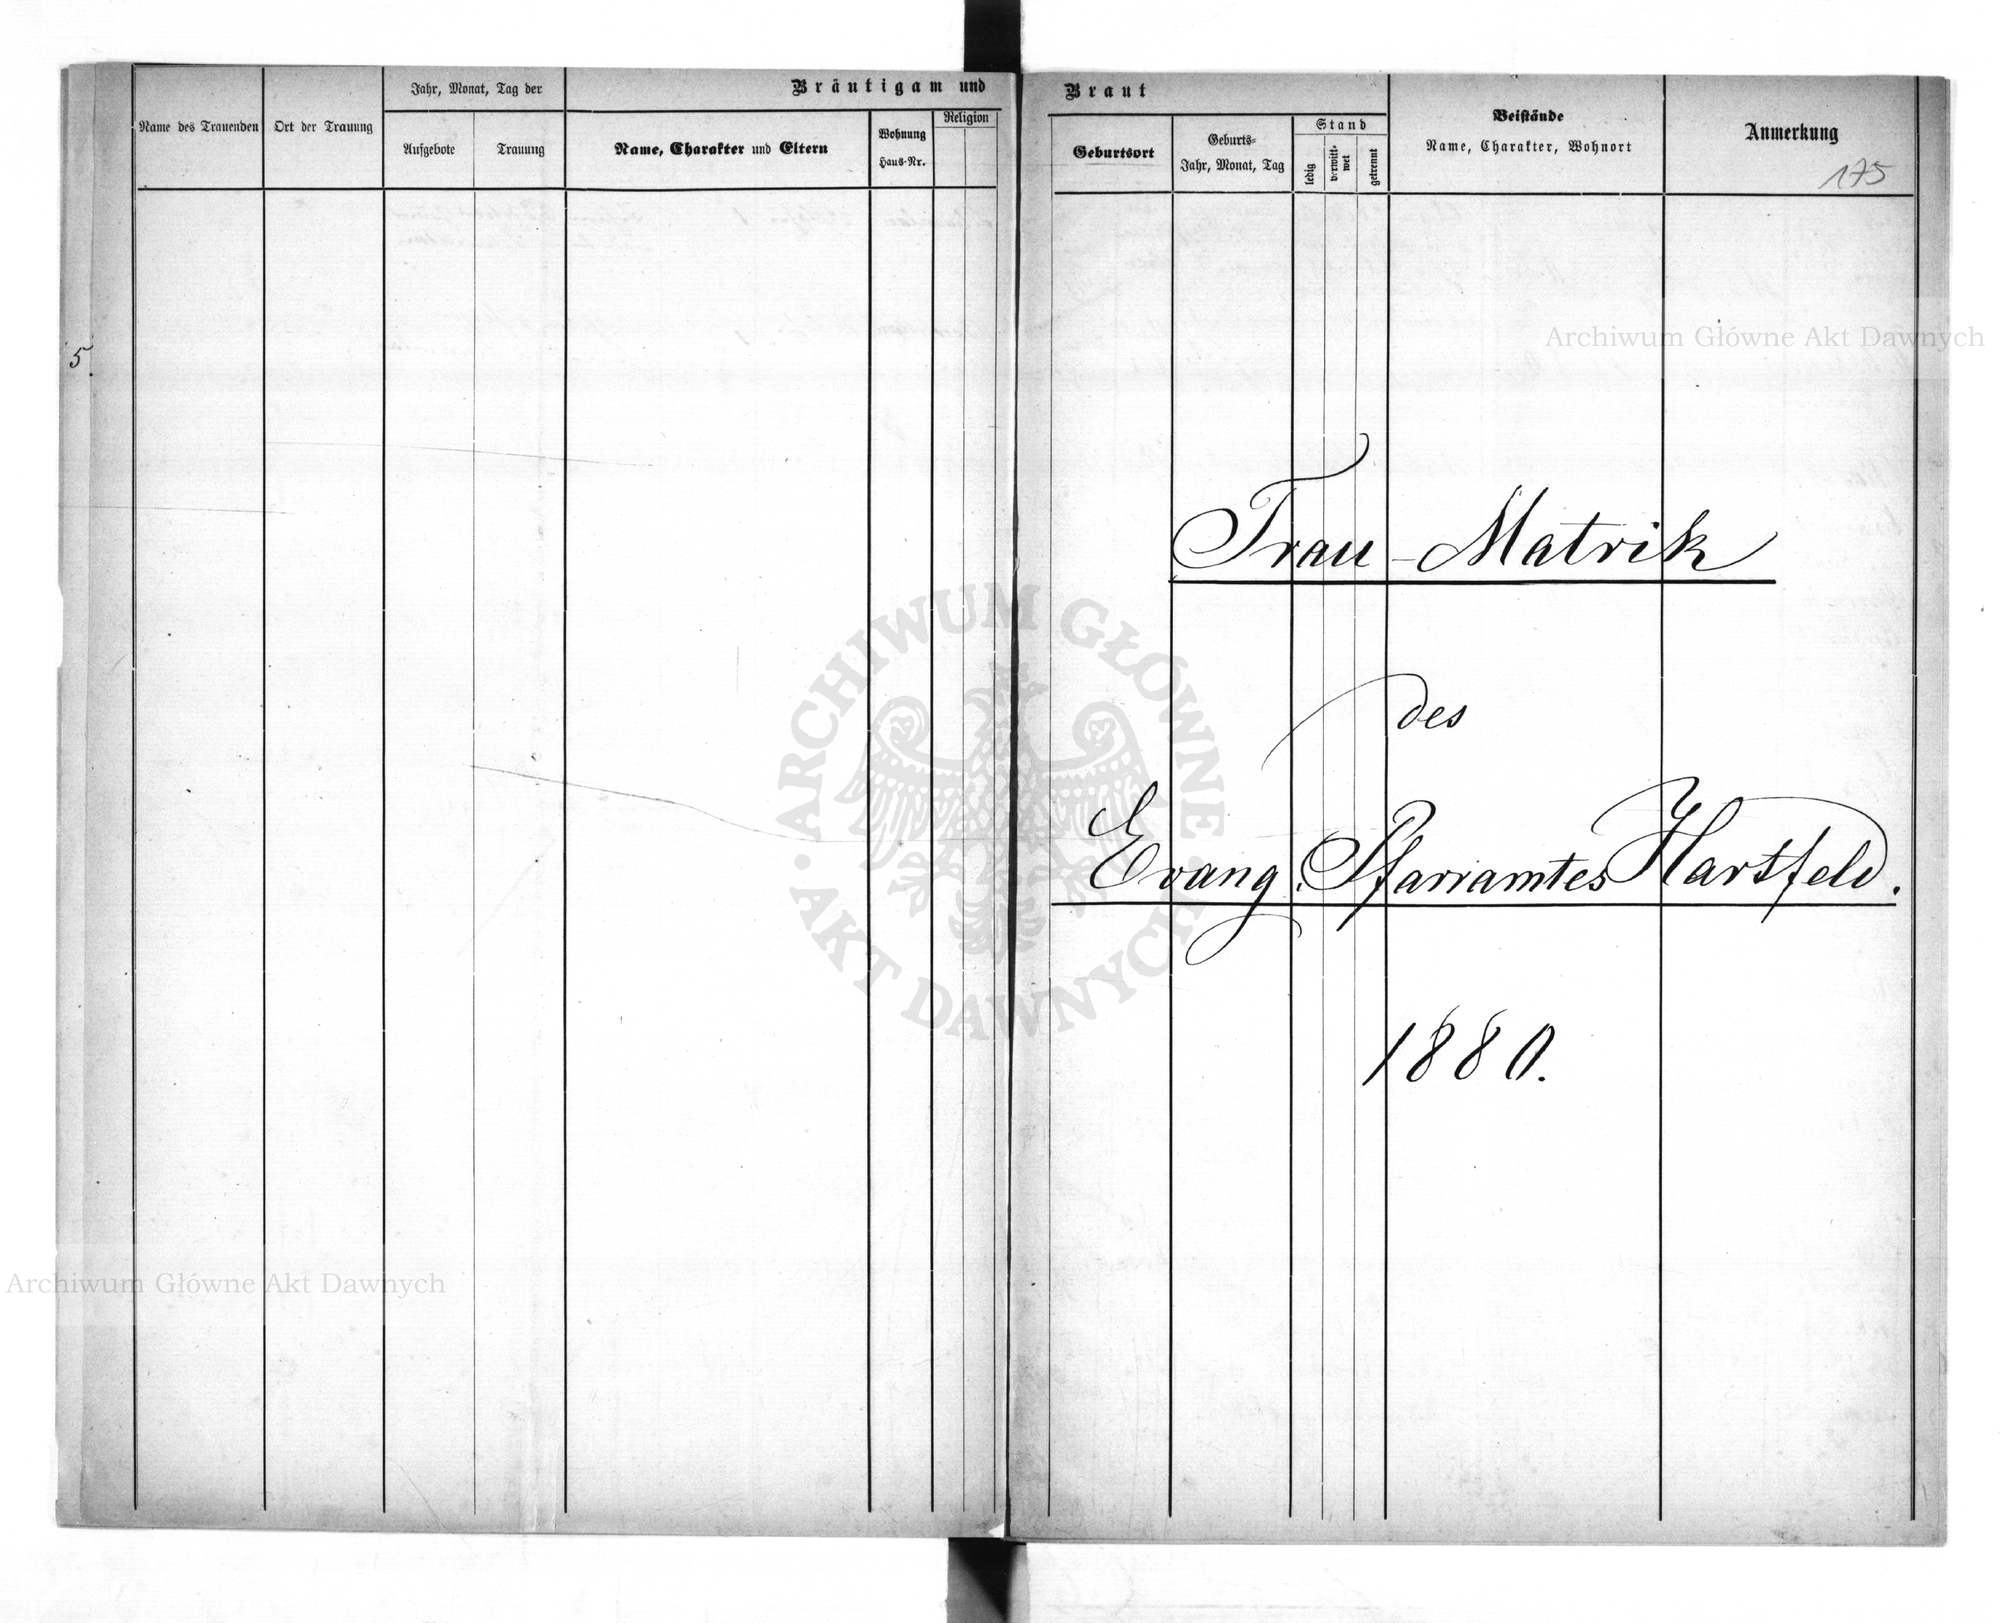 Jahr, Monat, Tag der
Bräutigam und
Name des Trauenden
Ort der Trauung
Aufgebote
Trauung
Name, Charakter und Eltern
Wohnung
Haus-Nr.
Religion
5.
Braut
Geburtsort
Geburts-
Jahr, Monat, Tag
Stand
ledig
verwitt-
wet
getrennt
Beistände
Name, Charakter, Wohnort
Anmerkung
175
Trau-Matrik
des
Evang. Pfarramtes Hartfeld.
1880.
Archiwum Główne Akt Dawnych
Archiwum Główne Akt Dawnych
ARCHIWUM GŁÓWNE
· AKT DAWNYCH ·